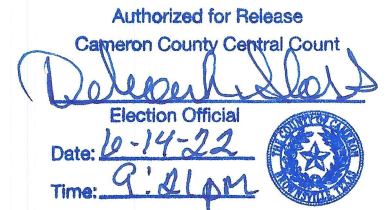 Authorized for Release
Cameron County Central Count
Election Official
Date: 6-14-22
Time: 9:21pm
THE COUNTY OF CAMERON
BROWNSVILLE, TEXAS